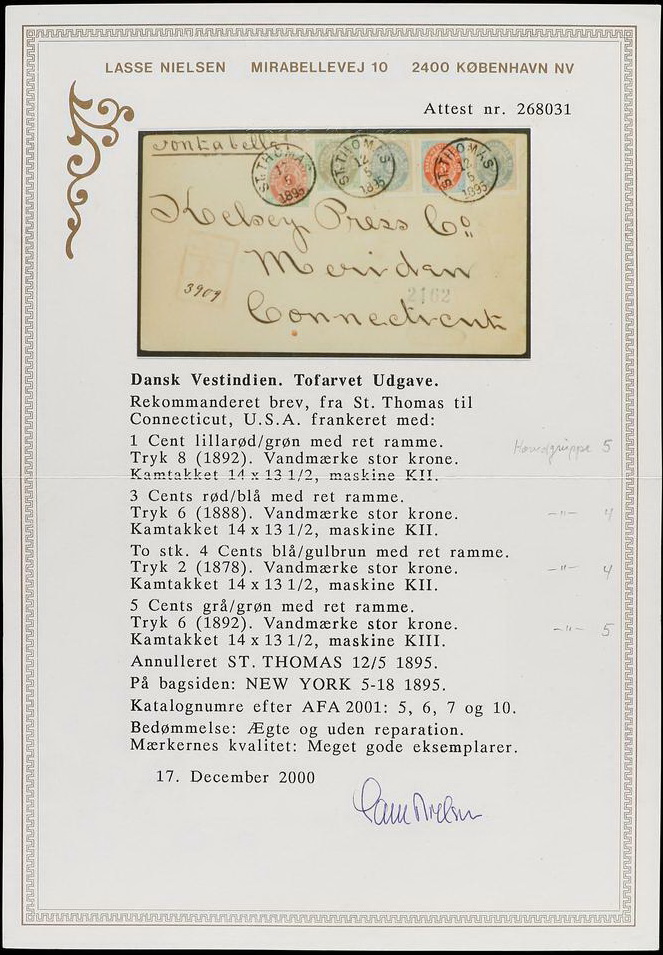 LASSE NIELSEN MIRABELLEVEJ 10 2400 KØBENHAVN NV
Attest nr. 268031
ST. THOMAS 12 5 1895
ST. THOMAS 12 5 1895
ST. THOMAS 12 5 1895
Kelsey Press Co.
Meriden
3909
2162
Connecticut
Dansk Vestindien. Tofarvet Udgave.
Rekommanderet brev, fra St. Thomas til
Connecticut, U.S.A. frankeret med:
1 Cent lillarød/grøn med ret ramme.
Hovedgruppe 5
Tryk 8 (1892). Vandmærke stor krone.
Kamtakket 14 x 13 1/2, maskine KII.
3 Cents rød/blå med ret ramme.
Tryk 6 (1888). Vandmærke stor krone. -"- 4
Kamtakket 14 x 13 1/2, maskine KII.
To stk. 4 Cents blå/gulbrun med ret ramme.
Tryk 2 (1878). Vandmærke stor krone. -"- 4
Kamtakket 14 x 13 1/2, maskine KII.
5 Cents grå/grøn med ret ramme.
Tryk 6 (1892). Vandmærke stor krone. -"- 5
Kamtakket 14 x 13 1/2, maskine KIII.
Annulleret ST. THOMAS 12/5 1895.
På bagsiden: NEW YORK 5-18 1895.
Katalognumre efter AFA 2001: 5, 6, 7 og 10.
Bedømmelse: Ægte og uden reparation.
Mærkernes kvalitet: Meget gode eksemplarer.
17. December 2000
Lasse Nielsen